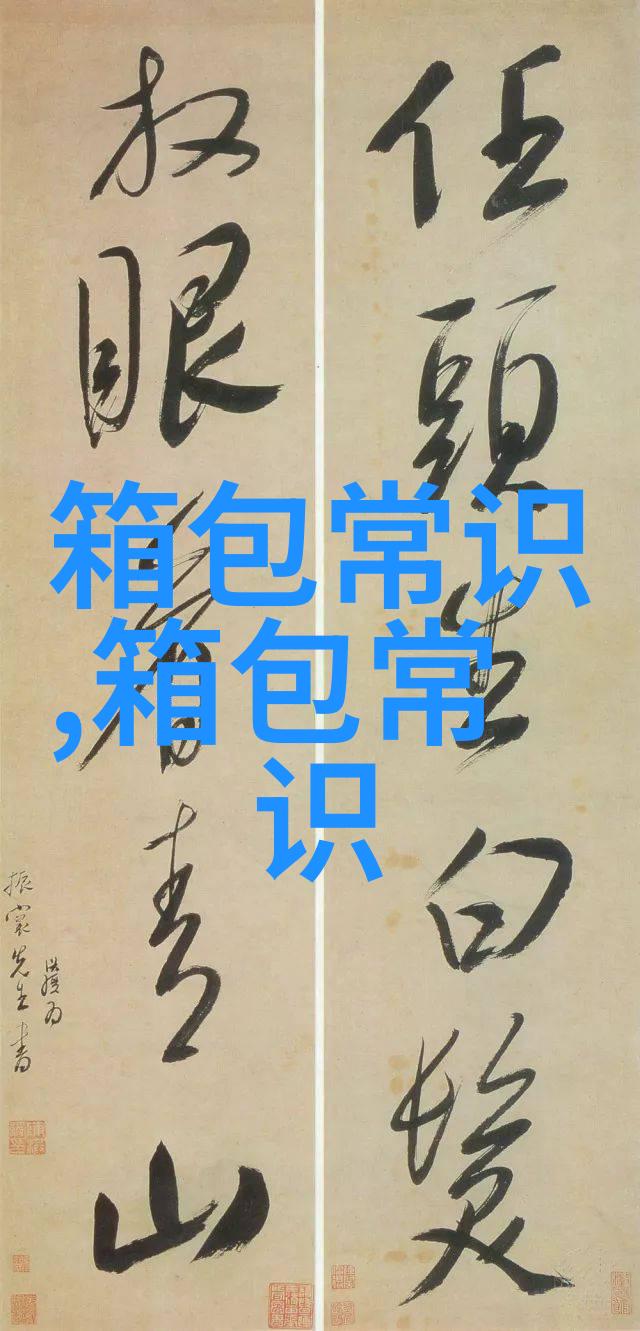 任頭生白髮
放眼看青山
先生書
箱包常识
,箱包常
识